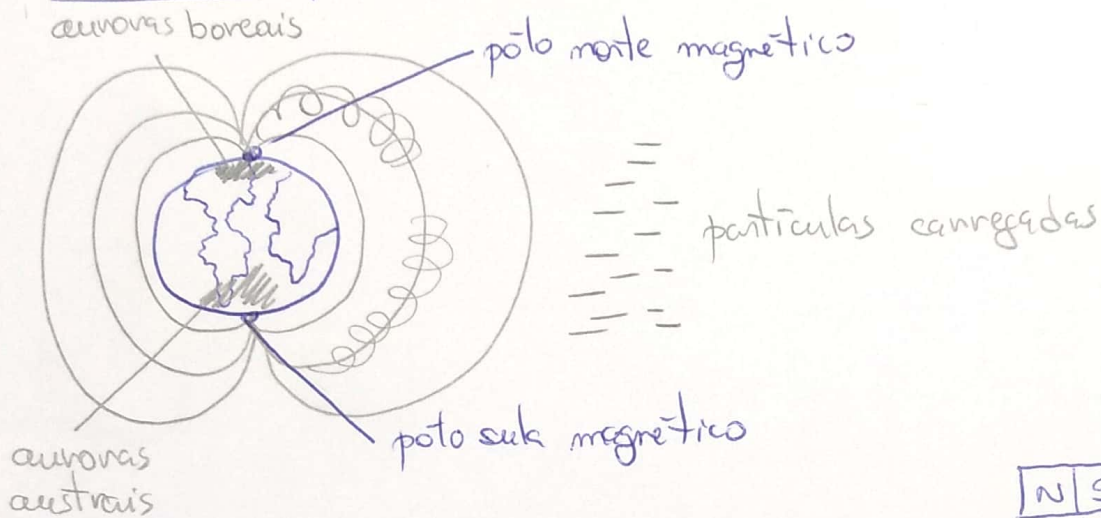 auroras boreais
pólo norte magnético
partículas carregadas
pólo sul magnético
auroras
austrais
N S